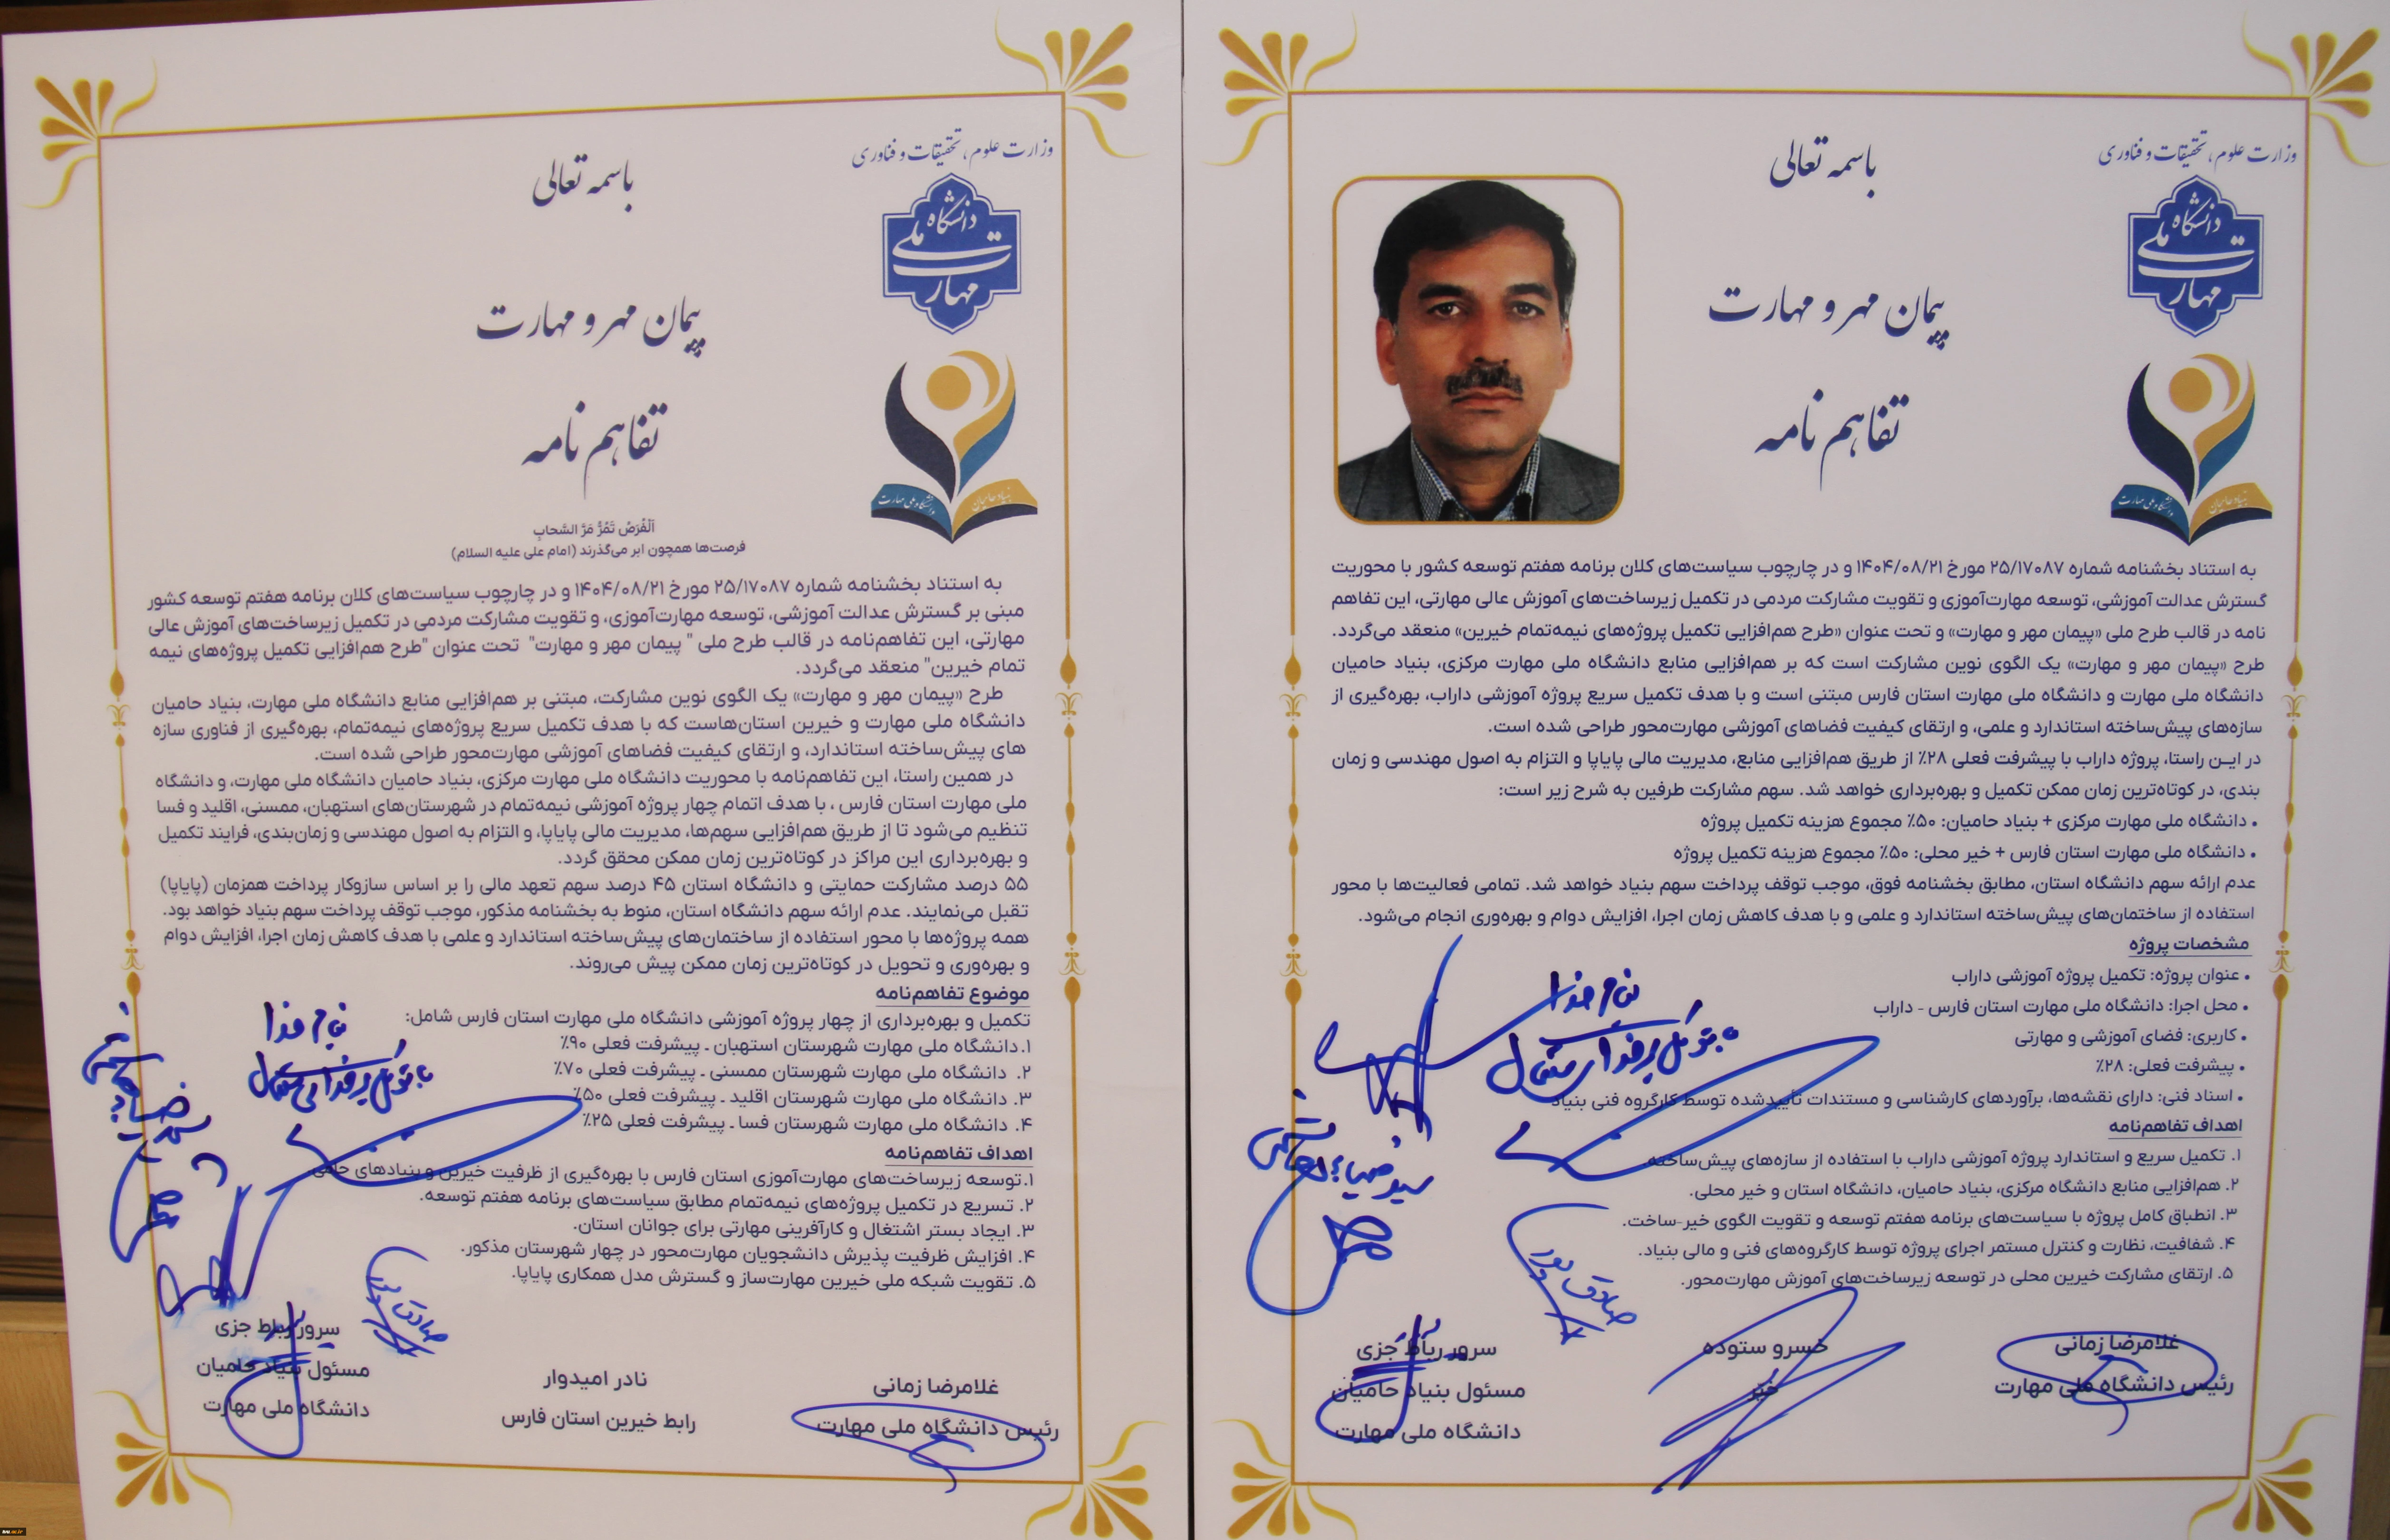 وزارت علوم، تحقیقات و فناوری
باسمه تعالی
دانشگاه ملی مهارت
پیمان مهر و مهارت
تفاهم نامه
بنیاد حامیان دانشگاه ملی مهارت
به استناد بخشنامه شماره ۲۵/۱۷۰۸۷ مورخ ۱۴۰۴/۰۸/۲۱ و در چارچوب سیاست‌های کلان برنامه هفتم توسعه کشور با محوریت
گسترش عدالت آموزشی، توسعه مهارت‌آموزی و تقویت مشارکت مردمی در تکمیل زیرساخت‌های آموزش عالی مهارتی، این تفاهم
نامه در قالب طرح ملی «پیمان مهر و مهارت» و تحت عنوان «طرح هم‌افزایی تکمیل پروژه‌های نیمه‌تمام خیرین» منعقد می‌گردد.
طرح «پیمان مهر و مهارت» یک الگوی نوین مشارکت است که بر هم‌افزایی منابع دانشگاه ملی مهارت مرکزی، بنیاد حامیان
دانشگاه ملی مهارت و دانشگاه ملی مهارت استان فارس مبتنی است و با هدف تکمیل سریع پروژه آموزشی داراب، بهره‌گیری از
سازه‌های پیش‌ساخته استاندارد و علمی، و ارتقای کیفیت فضاهای آموزشی مهارت‌محور طراحی شده است.
در این راستا، پروژه داراب با پیشرفت فعلی ۲۸٪ از طریق هم‌افزایی منابع، مدیریت مالی پایاپا و التزام به اصول مهندسی و زمان
بندی، در کوتاه‌ترین زمان ممکن تکمیل و بهره‌برداری خواهد شد. سهم مشارکت طرفین به شرح زیر است:
• دانشگاه ملی مهارت مرکزی + بنیاد حامیان: ۵۰٪ مجموع هزینه تکمیل پروژه
• دانشگاه ملی مهارت استان فارس + خیر محلی: ۵۰٪ مجموع هزینه تکمیل پروژه
عدم ارائه سهم دانشگاه استان، مطابق بخشنامه فوق، موجب توقف پرداخت سهم بنیاد خواهد شد. تمامی فعالیت‌ها با محور
استفاده از ساختمان‌های پیش‌ساخته استاندارد و علمی و با هدف کاهش زمان اجرا، افزایش دوام و بهره‌وری انجام می‌شود.
مشخصات پروژه
• عنوان پروژه: تکمیل پروژه آموزشی داراب
• محل اجرا: دانشگاه ملی مهارت استان فارس - داراب
• کاربری: فضای آموزشی و مهارتی
• پیشرفت فعلی: ۲۸٪
• اسناد فنی: دارای نقشه‌ها، برآوردهای کارشناسی و مستندات تأییدشده توسط کارگروه فنی بنیاد
اهداف تفاهم‌نامه
۱. تکمیل سریع و استاندارد پروژه آموزشی داراب با استفاده از سازه‌های پیش‌ساخته.
۲. هم‌افزایی منابع دانشگاه مرکزی، بنیاد حامیان، دانشگاه استان و خیر محلی.
۳. انطباق کامل پروژه با سیاست‌های برنامه هفتم توسعه و تقویت الگوی خیر-ساخت.
۴. شفافیت، نظارت و کنترل مستمر اجرای پروژه توسط کارگروه‌های فنی و مالی بنیاد.
۵. ارتقای مشارکت خیرین محلی در توسعه زیرساخت‌های آموزش مهارت‌محور.
بنام خدا
با توکل بر خدای متعال
صادق پور
غلامرضا زمانی
رئیس دانشگاه ملی مهارت
خسرو ستوده
خیر
سرور رباط جزی
مسئول بنیاد حامیان
دانشگاه ملی مهارت
وزارت علوم، تحقیقات و فناوری
باسمه تعالی
دانشگاه ملی مهارت
پیمان مهر و مهارت
تفاهم نامه
بنیاد حامیان دانشگاه ملی مهارت
اَلْفُرَصُ تَمُرُّ مَرَّ السَّحابِ
فرصت‌ها همچون ابر می‌گذرند (امام علی علیه السلام)
به استناد بخشنامه شماره ۲۵/۱۷۰۸۷ مورخ ۱۴۰۴/۰۸/۲۱ و در چارچوب سیاست‌های کلان برنامه هفتم توسعه کشور
مبنی بر گسترش عدالت آموزشی، توسعه مهارت‌آموزی، و تقویت مشارکت مردمی در تکمیل زیرساخت‌های آموزش عالی
مهارتی، این تفاهم‌نامه در قالب طرح ملی " پیمان مهر و مهارت" تحت عنوان "طرح هم‌افزایی تکمیل پروژه‌های نیمه
تمام خیرین" منعقد می‌گردد.
طرح «پیمان مهر و مهارت» یک الگوی نوین مشارکت، مبتنی بر هم‌افزایی منابع دانشگاه ملی مهارت، بنیاد حامیان
دانشگاه ملی مهارت و خیرین استان‌هاست که با هدف تکمیل سریع پروژه‌های نیمه‌تمام، بهره‌گیری از فناوری سازه
های پیش‌ساخته استاندارد، و ارتقای کیفیت فضاهای آموزشی مهارت‌محور طراحی شده است.
در همین راستا، این تفاهم‌نامه با محوریت دانشگاه ملی مهارت مرکزی، بنیاد حامیان دانشگاه ملی مهارت، و دانشگاه
ملی مهارت استان فارس ، با هدف اتمام چهار پروژه آموزشی نیمه‌تمام در شهرستان‌های استهبان، ممسنی، اقلید و فسا
تنظیم می‌شود تا از طریق هم‌افزایی سهم‌ها، مدیریت مالی پایاپا، و التزام به اصول مهندسی و زمان‌بندی، فرایند تکمیل
و بهره‌برداری این مراکز در کوتاه‌ترین زمان ممکن محقق گردد.
۵۵ درصد مشارکت حمایتی و دانشگاه استان ۴۵ درصد سهم تعهد مالی را بر اساس سازوکار پرداخت همزمان (پایاپا)
تقبل می‌نمایند. عدم ارائه سهم دانشگاه استان، منوط به بخشنامه مذکور، موجب توقف پرداخت سهم بنیاد خواهد بود.
همه پروژه‌ها با محور استفاده از ساختمان‌های پیش‌ساخته استاندارد و علمی با هدف کاهش زمان اجرا، افزایش دوام
و بهره‌وری و تحویل در کوتاه‌ترین زمان ممکن پیش می‌روند.
موضوع تفاهم‌نامه
تکمیل و بهره‌برداری از چهار پروژه آموزشی دانشگاه ملی مهارت استان فارس شامل:
۱. دانشگاه ملی مهارت شهرستان استهبان ـ پیشرفت فعلی ۹۰٪
۲. دانشگاه ملی مهارت شهرستان ممسنی ـ پیشرفت فعلی ۷۰٪
۳. دانشگاه ملی مهارت شهرستان اقلید ـ پیشرفت فعلی ۵۰٪
۴. دانشگاه ملی مهارت شهرستان فسا ـ پیشرفت فعلی ۲۵٪
اهداف تفاهم‌نامه
۱. توسعه زیرساخت‌های مهارت‌آموزی استان فارس با بهره‌گیری از ظرفیت خیرین و بنیادهای
۲. تسریع در تکمیل پروژه‌های نیمه‌تمام مطابق سیاست‌های برنامه هفتم توسعه.
۳. ایجاد بستر اشتغال و کارآفرینی مهارتی برای جوانان استان.
۴. افزایش ظرفیت پذیرش دانشجویان مهارت‌محور در چهار شهرستان مذکور.
۵. تقویت شبکه ملی خیرین مهارت‌ساز و گسترش مدل همکاری پایاپا.
بنام خدا
با توکل بر خدای متعال
صادق پور
غلامرضا زمانی
رئیس دانشگاه ملی مهارت
نادر امیدوار
رابط خیرین استان فارس
سرور رباط جزی
مسئول بنیاد حامیان
دانشگاه ملی مهارت